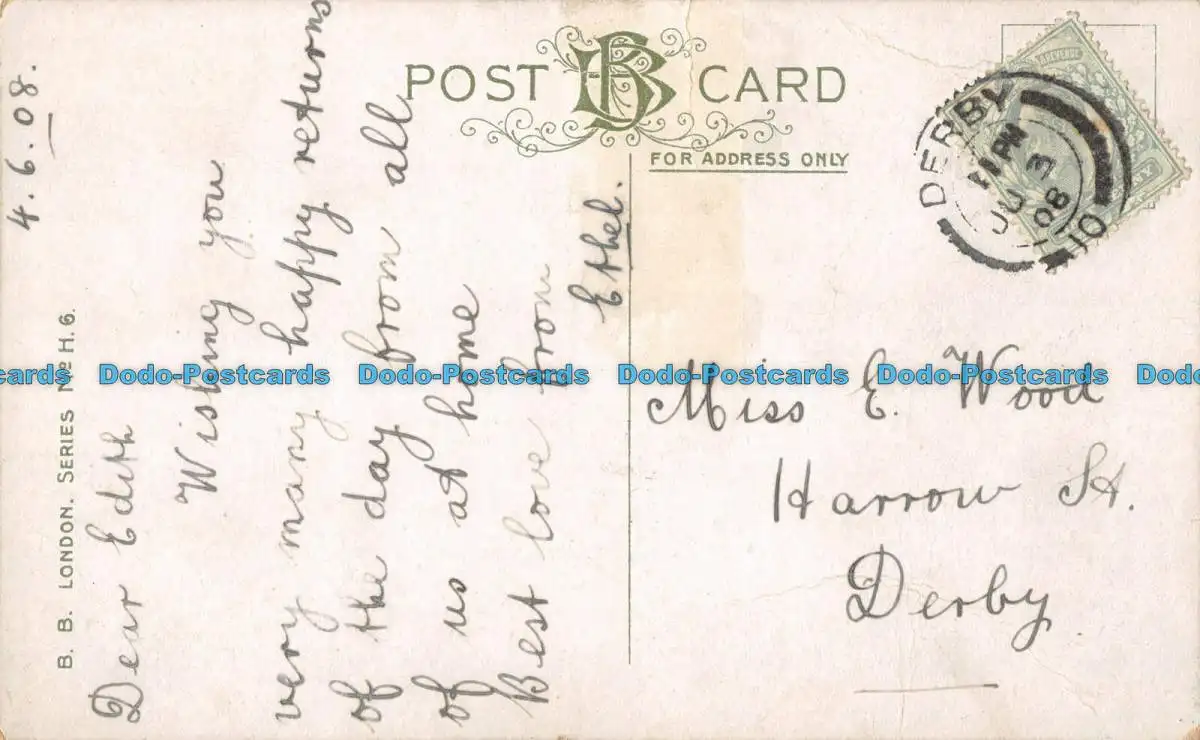 POST BB CARD
FOR ADDRESS ONLY
DERBY
JU 3
08
10
4.6.08.
Dear Edith
Wishing you
very many happy returns
of the day from all
of us at home
Best love from
Ethel.
Miss E. Wood
Harrow St.
Derby
B. B. LONDON. SERIES No H. 6.
Dodo-Postcards Dodo-Postcards Dodo-Postcards Dodo-Postcards